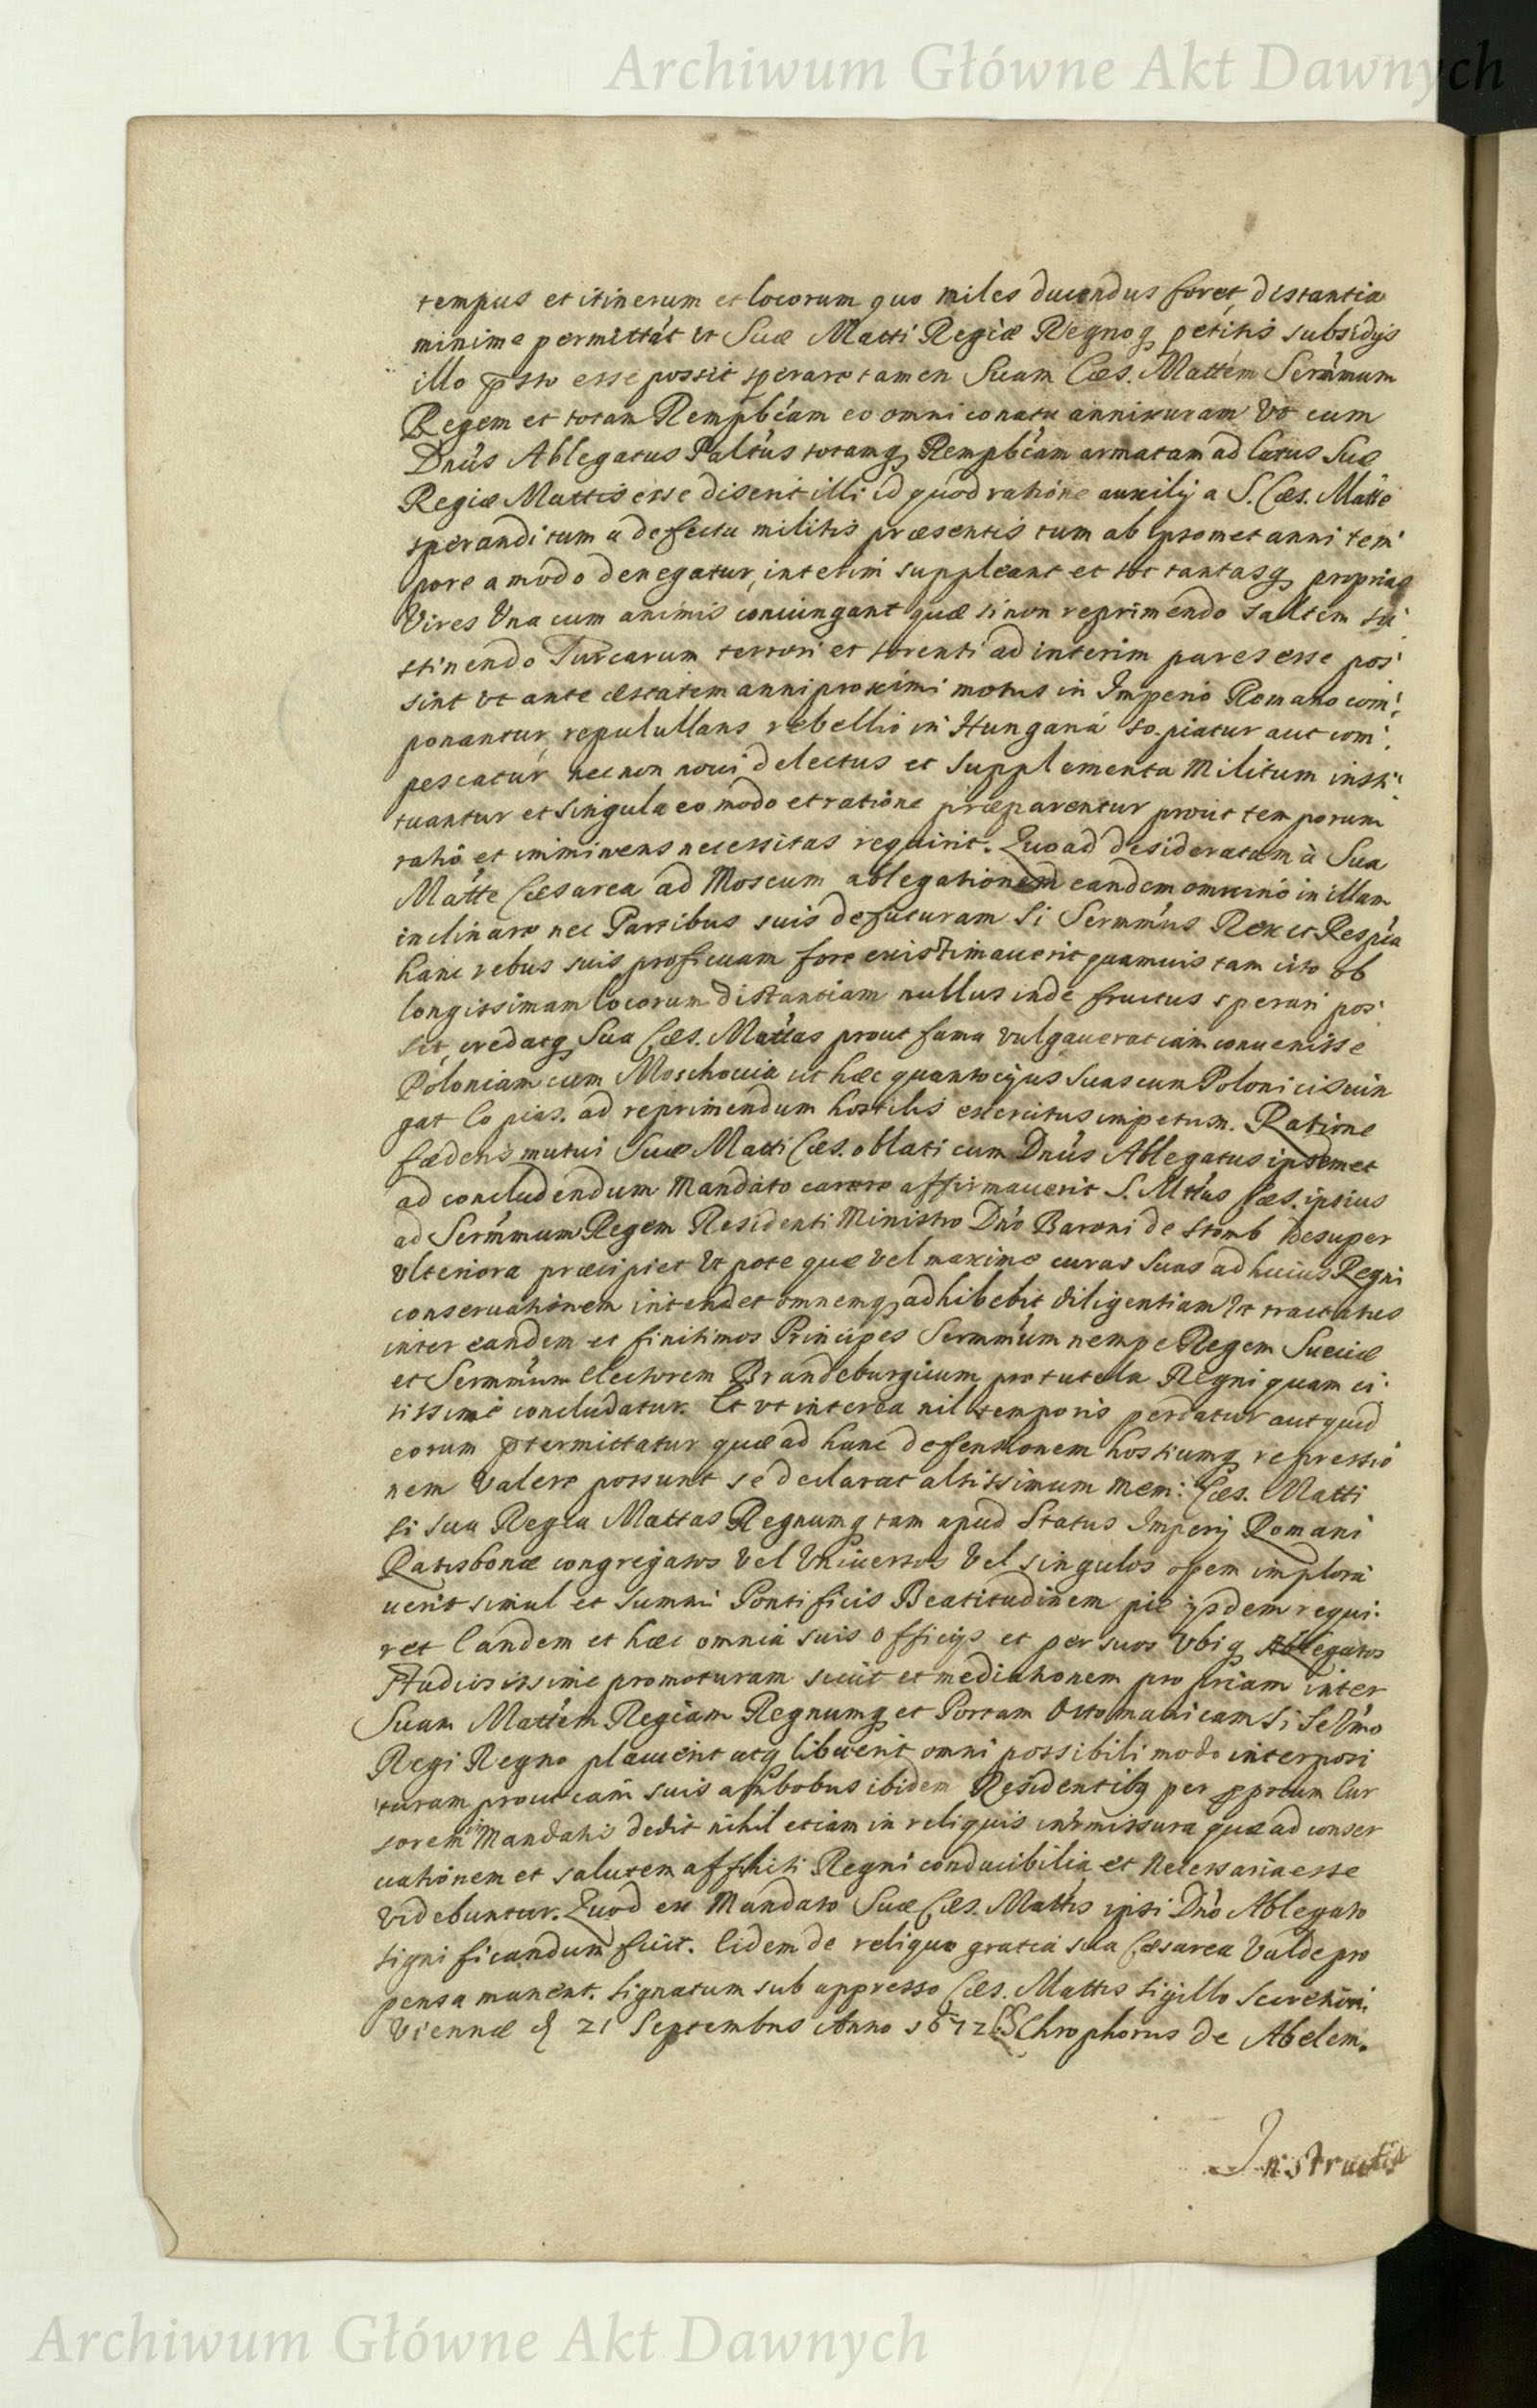 Archiwum Główne Akt Dawnych
tempus et itinerum et locorum quo miles ducendus foret, distantia
minime permittat ut Suæ Matti Regiæ Regnoq petitis subsidijs
illo psto esse possit sperare tamen Suam Cæs. Mattem Sermum
Regem et totam Rempbcam eo omni conatu annixuram Vt cum
Dnus Ablegatus Paltus totamq Rempbcam armatam ad latus Suæ
Regiæ Mattis esse dixerit illi id quod ratione auxilij a S. Cæs. Matte
sperandi tum a defectu militis præsentis tum ab ipsomet anni tem
pore amodo denegatur, interim suppleant et tot tantasq proprias
Vires Vna cum animis coniungant quæ si non reprimendo saltem su
stinendo Turcarum terrori et torrenti ad interim pares esse pos
sint vt ante æstatem anni proximi motus in Imperio Romano com
ponantur, repulullans rebellio in Hungaria sopiatur aut com
pescatur nec non noui delectus et supplementa Militum insti
tuantur et singula eo modo et ratione præparentur prout temporum
ratio et imminens necessitas requirit. Quoad desideratam à Sua
Matte Cæsarea ad Moscum ablegationem eandem omnino in illam
inclinare nec Partibus suis defuturam Si Sermmus Rex et Respca
hanc rebus suis proficuam fore existimauerit quamuis tam cito ob
longissimam locorum distantiam nullus inde fructus sperari pos
sit, credatq Sua Cæs. Mattas prout fama vulgauerat iam conuenisse
Poloniam cum Moschouia ut hæc quantocijus suas cum Polonicis iun
gat Copias. ad reprimendum hostilis exercitus impetum. Ratione
fœderis mutui Suæ Matti Cæs. oblati cum Dnus Ablegatus ipsemet
ad concludendum Mandato carere affirmauerit S. Mttas Cæs. ipsius
ad Sermmum Regem Residenti Ministro Dno Baroni de Stomb Desuper
Vlteriora præcipiet Vt pote quæ vel maxime curas suas ad huius Regni
conseruationem intendet omnemq adhibebit diligentiam Vt tractatus
inter eandem et finitimos Principes Sermmum nempe Regem Sueciæ
et Sermmum Electorem Brandeburgicum pro tutela Regni quam ci
tissime concludatur. Et vt interea nil temporis perdatur aut quid
eorum ptermittatur quæ ad hanc defensionem hostiumq repressio
nem valere possunt se declarat altissimum mem: Cæs. Matti
si sua Regia Mattas Regnumq tam apud Status Imperij Romani
Ratisbonæ congregatos Vel Vniuersos Vel singulos opem implora
uerit simul et Summi Pontificis Beatitudinem pie ijsdem requi
ret Eandem et hæc omnia suis officijs et per suos Vbiq Ablegatos
studiosissime promoturam sicut et mediationem propriam inter
Suam Mattem Regiam Regnumq et Portam Ottomanicam si Sermo
Regi Regno placuerit atq libuerit omni possibili modo interposi
turam prout eam suis ambobus ibidem Residentibq per pprium Cur
sorem in Mandatis dedit nihil etiam in reliquis intermissura quæ ad conser
uationem et salutem afflicti Regni conducibilia et necessaria esse
videbuntur. Quod ex Mandato Suæ Cæs. Mattis ipsi Dno Ablegato
significandum fuit. Eidem de reliquo gratia sua Cæsarea Valde pro
pensa manent. Signatum sub appresso Cæs. Mattis sigillo Secretiori
Viennæ d 21 Septembris Anno 1672 LS Chrophorus de Abelem.
Instructio
Archiwum Główne Akt Dawnych